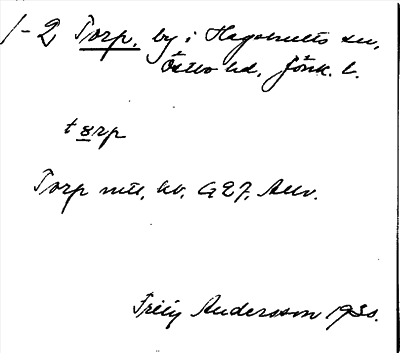 1-2 Torp, by i Hagshults sn,
Östbo hd, Jönk. l.
tɷrp
Torp mtl, kv. 427.
Andersson 1930.